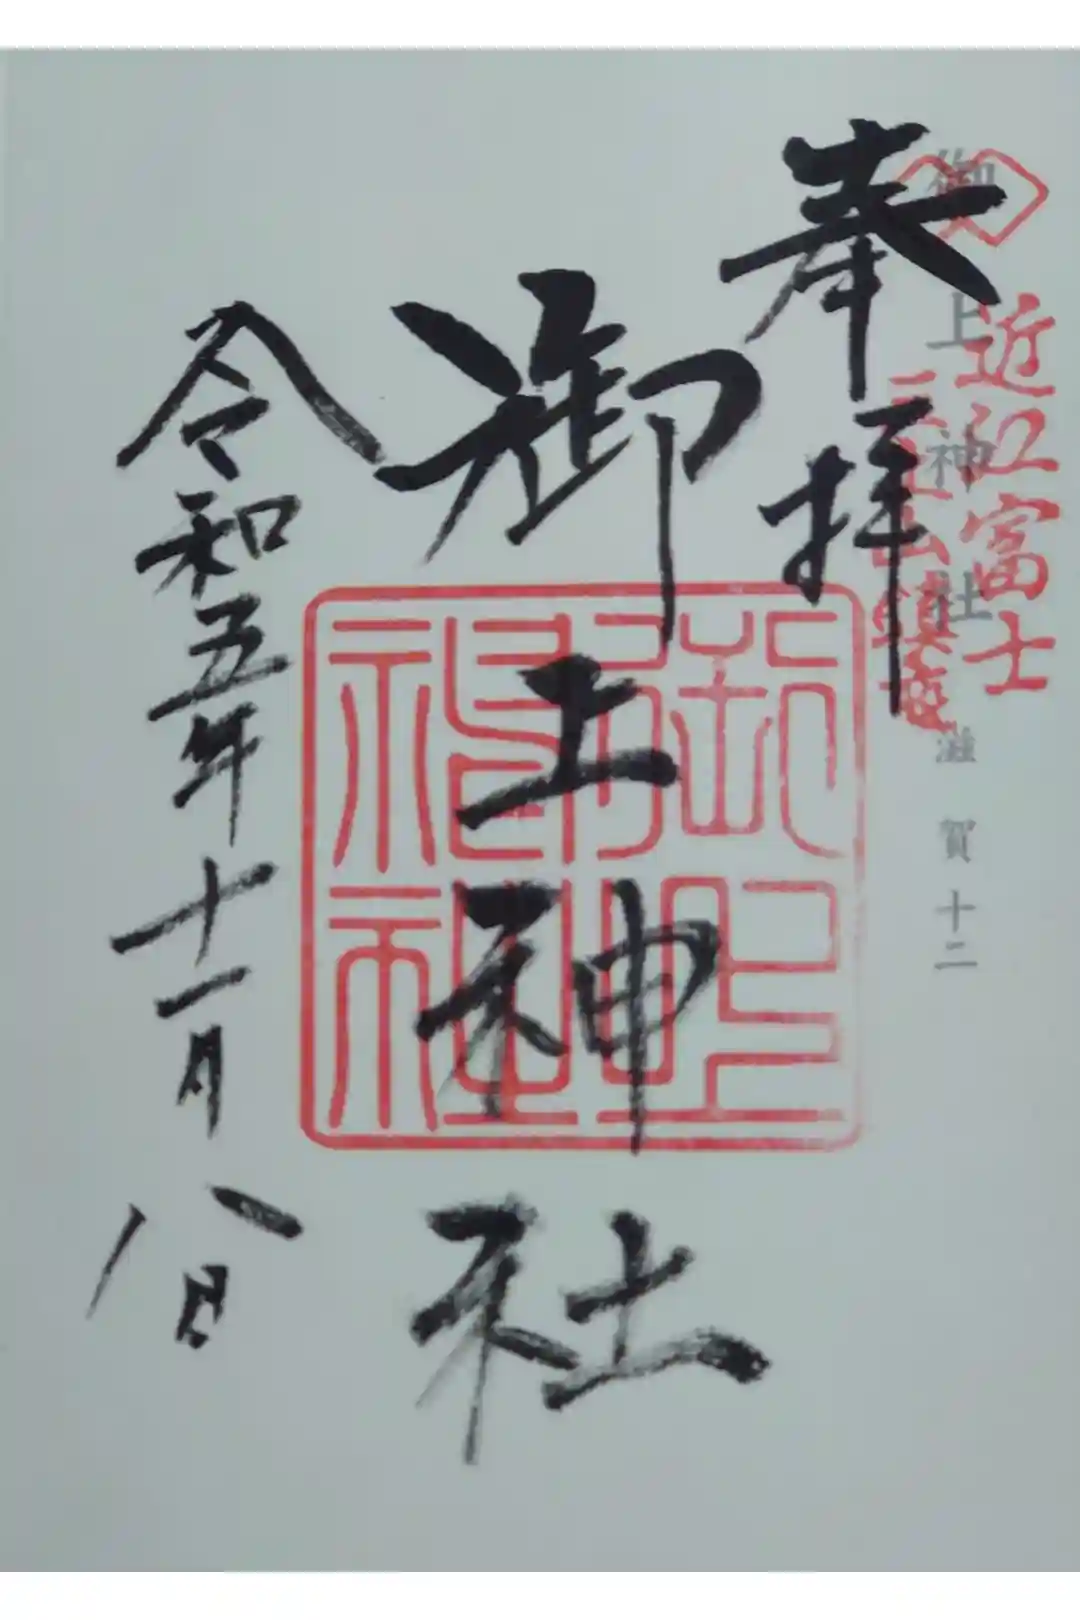 御上神社 滋賀十二
近江富士
三上山鎮座
奉拝
御上神社
御上神社
令和五年十一月八日